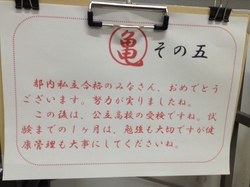 亀 その五
都内私立合格のみなさん、おめでとう
ございます。努力が実りましたね。
この後は、公立高校の受検ですね。試
験までの1ヶ月は、勉強も大切ですが健
康管理も大事にしてくださいね。